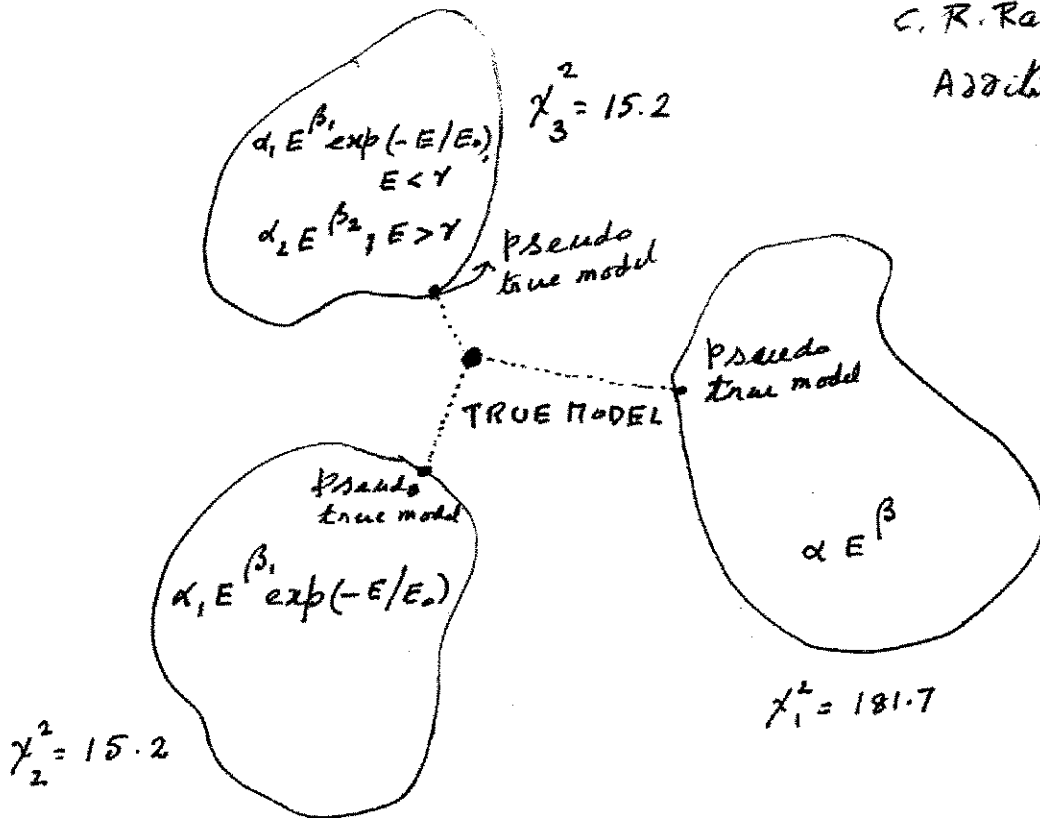 C. R. Ra
χ²₃ = 15.2
α₁ E^β₁ exp(-E/E₀),
E < γ
α₂ E^β₂, E > γ
pseudo
true model
pseudo
true model
TRUE MODEL
pseudo
true model
α₁ E^β₁ exp(-E/E₀)
α E^β
χ²₁ = 181.7
χ²₂ = 15.2